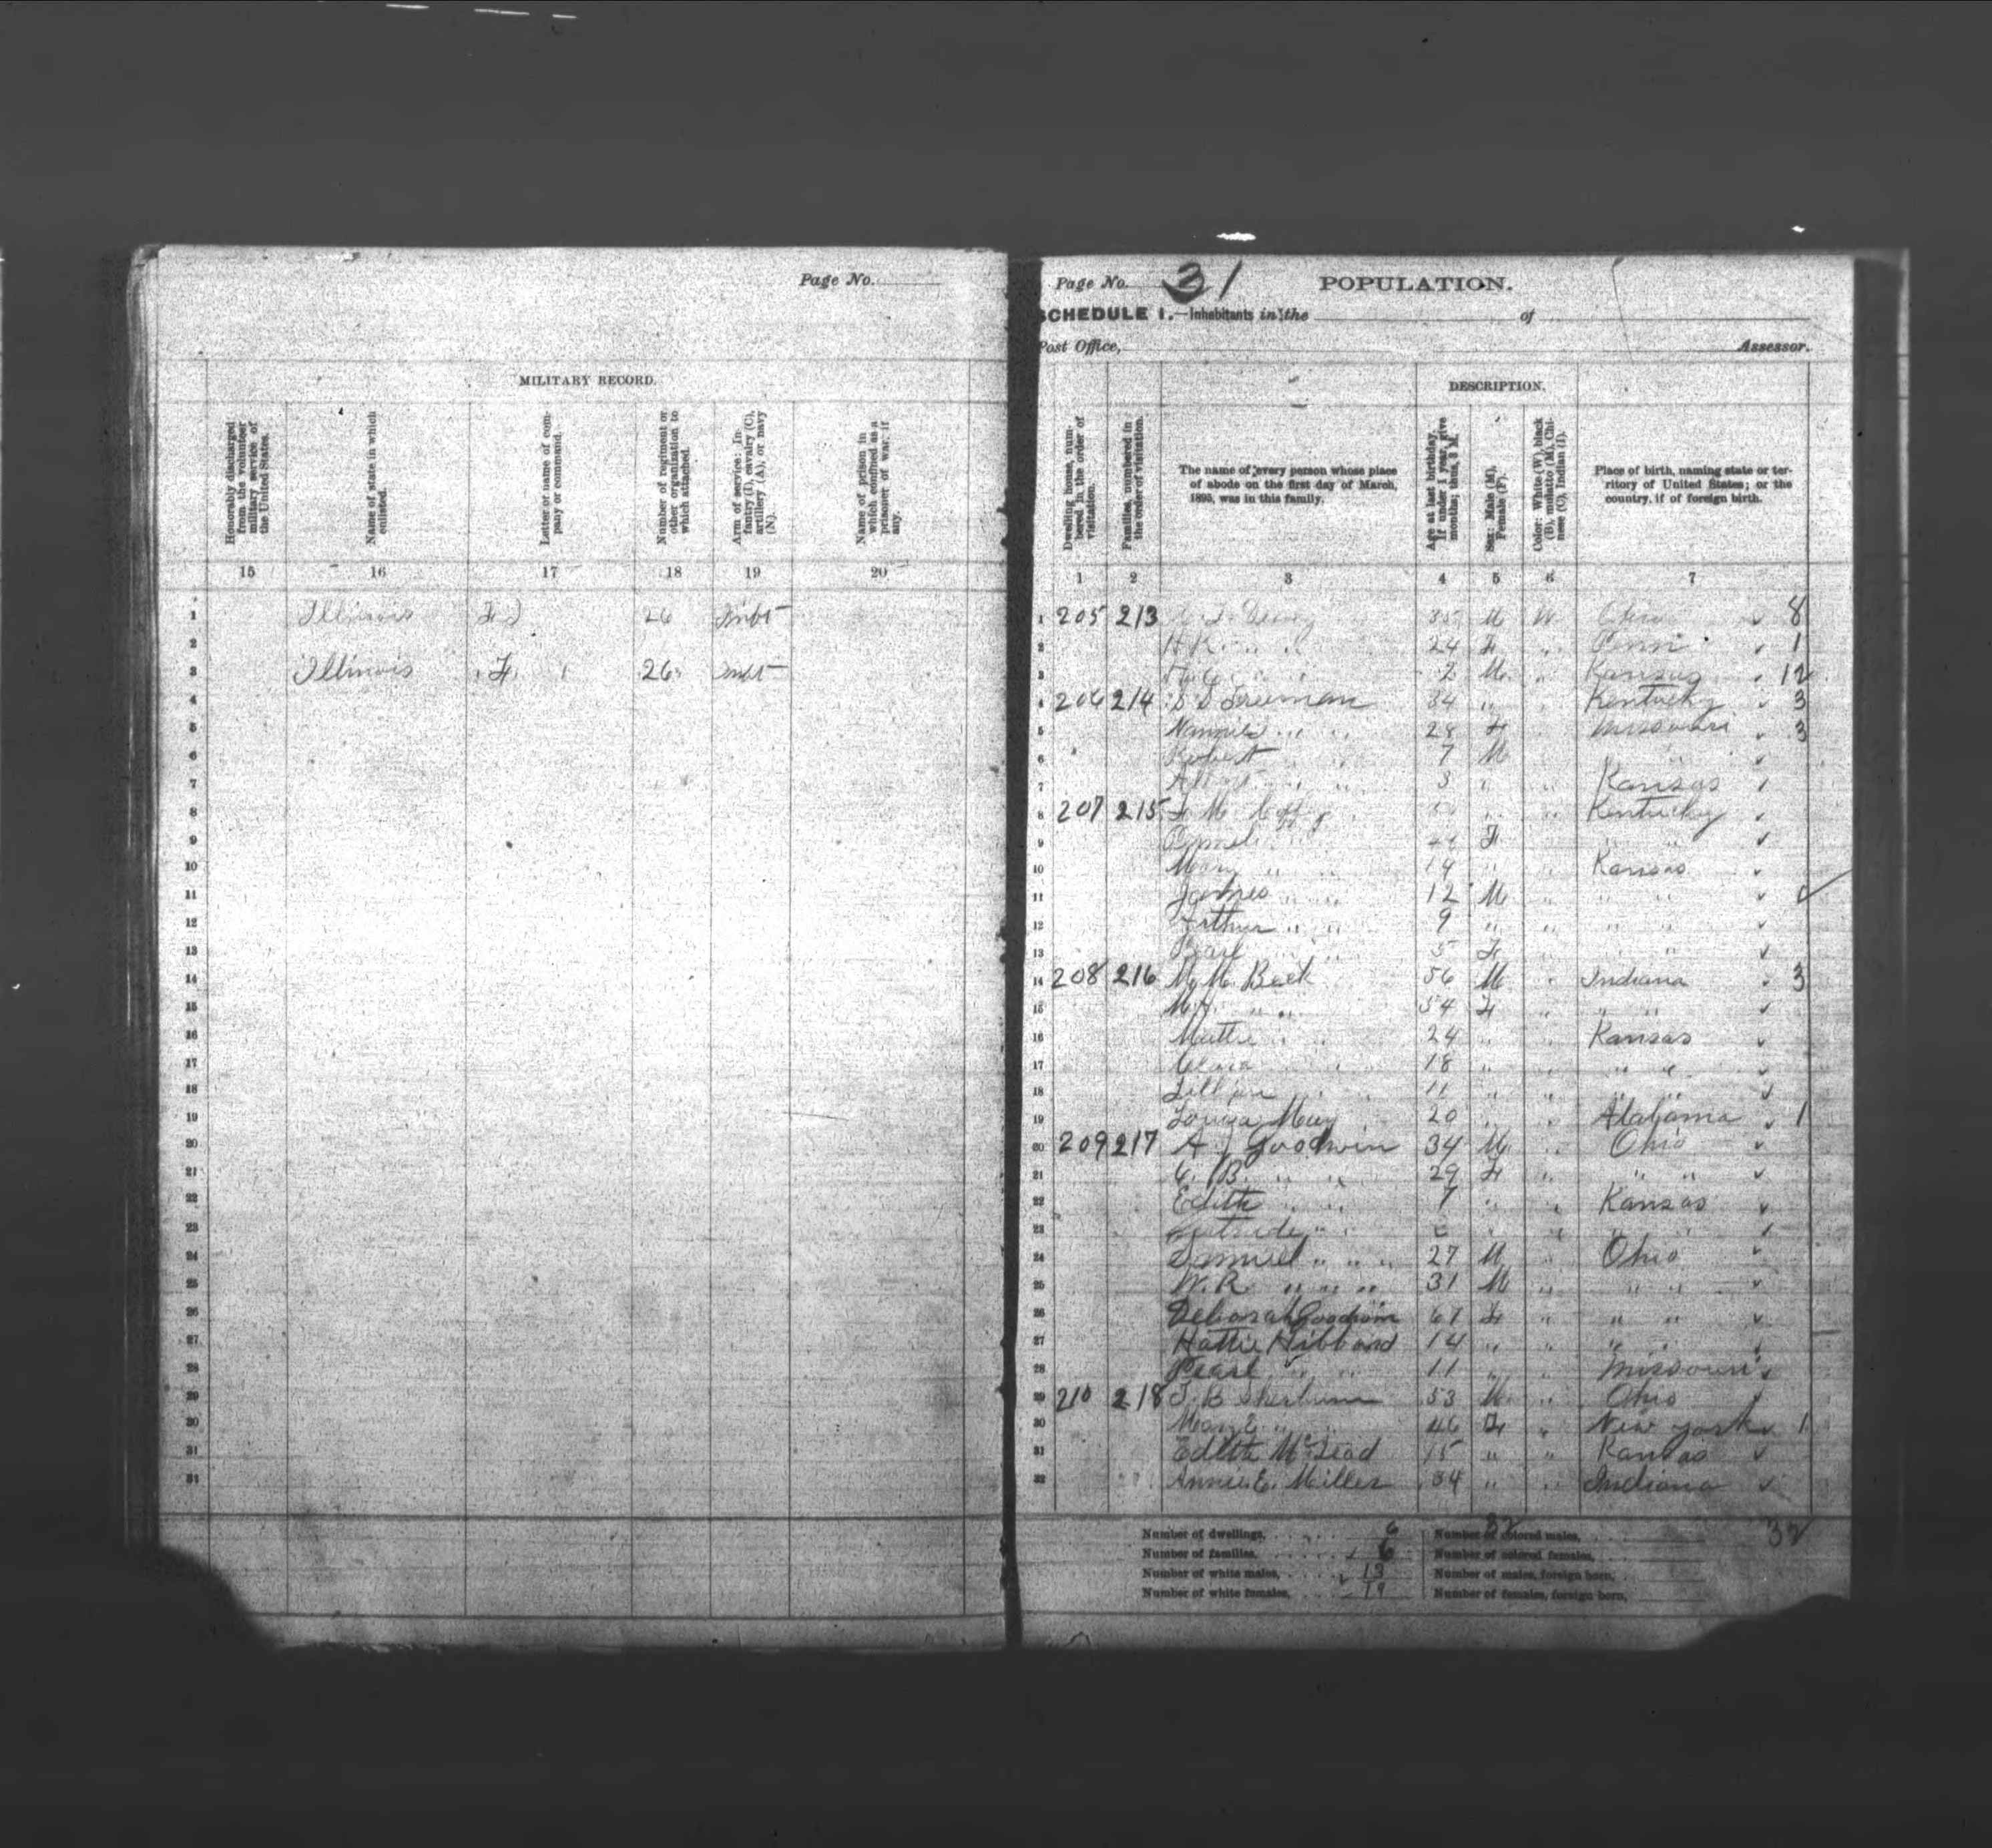 Page No.
MILITARY RECORD.
Honorably discharged from the volunteer military service of the United States.
Name of state in which enlisted.
Letter or name of company or command.
Number of regiment or other organization to which attached.
Arm of service: Infantry (I), cavalry (C), artillery (A), or navy (N).
Name of prison in which confined as a prisoner of war, if any.
15 16 17 18 19 20
1 Illinois 26
2
3 Illinois F 26
4
5
6
7
8
9
10
11
12
13
14
15
16
17
18
19
20
21
22
23
24
25
26
27
28
29
30
31
Page No. 31 POPULATION.
SCHEDULE 1.—Inhabitants in the of
Post Office, Assessor.
DESCRIPTION.
Dwelling house, numbered in the order of visitation.
Families, numbered in the order of visitation.
The name of every person whose place of abode on the first day of March, 1895, was in this family.
Age at last birthday. If under 1 year, give months; thus, 3 M.
Sex: Male (M), Female (F).
Color: White (W), black (B), mulatto (M), Chinese (C), Indian (I).
Place of birth, naming state or territory of United States; or the country, if of foreign birth.
1 2 3 4 5 6 7
1 205 213 M W Ohio 8
2 H.K. " " 24 F " 1
3 2 M " Kansas 12
4 206 214 Freeman 34 " Kentucky 3
5 Nannie " " 28 F Missouri 3
6 Robert 7 M
7 3 " " Kansas
8 207 215 Kentucky
9 F " "
10 Mary " 14 " " Kansas
11 James " " 12 M " " "
12 Arthur " " 9 " " " "
13 5 F " "
14 208 216 M. M. Beck 56 M " Indiana 3
15 " " 54 F " " "
16 Mattie " " 24 " " Kansas
17 18 " " " "
18 Lillian 11 " " " "
19 Louiza May 20 " " Alabama 1
20 209 217 A J Goodwin 34 M " Ohio
21 C. B. " " 29 F " " "
22 Edith " " 7 " " Kansas
23 " " " " " "
24 Samuel " " " 27 M " Ohio
25 W. R. " " " " 31 M " " "
26 Deborah Goodwin 61 F " " "
27 Hattie Hibbard 14 " " " "
28 Pearl " " 11 " " Missouri
29 210 218 53 M " Ohio
30 Mary E " " 46 F " New York 1
31 Edith 15 " " Kansas
32 Annie E. Miller 34 " " Indiana
Number of dwellings, 6 Number of colored males,
Number of families, 6 Number of colored females,
Number of white males, 13 Number of males, foreign born,
Number of white females, 19 Number of females, foreign born,
32